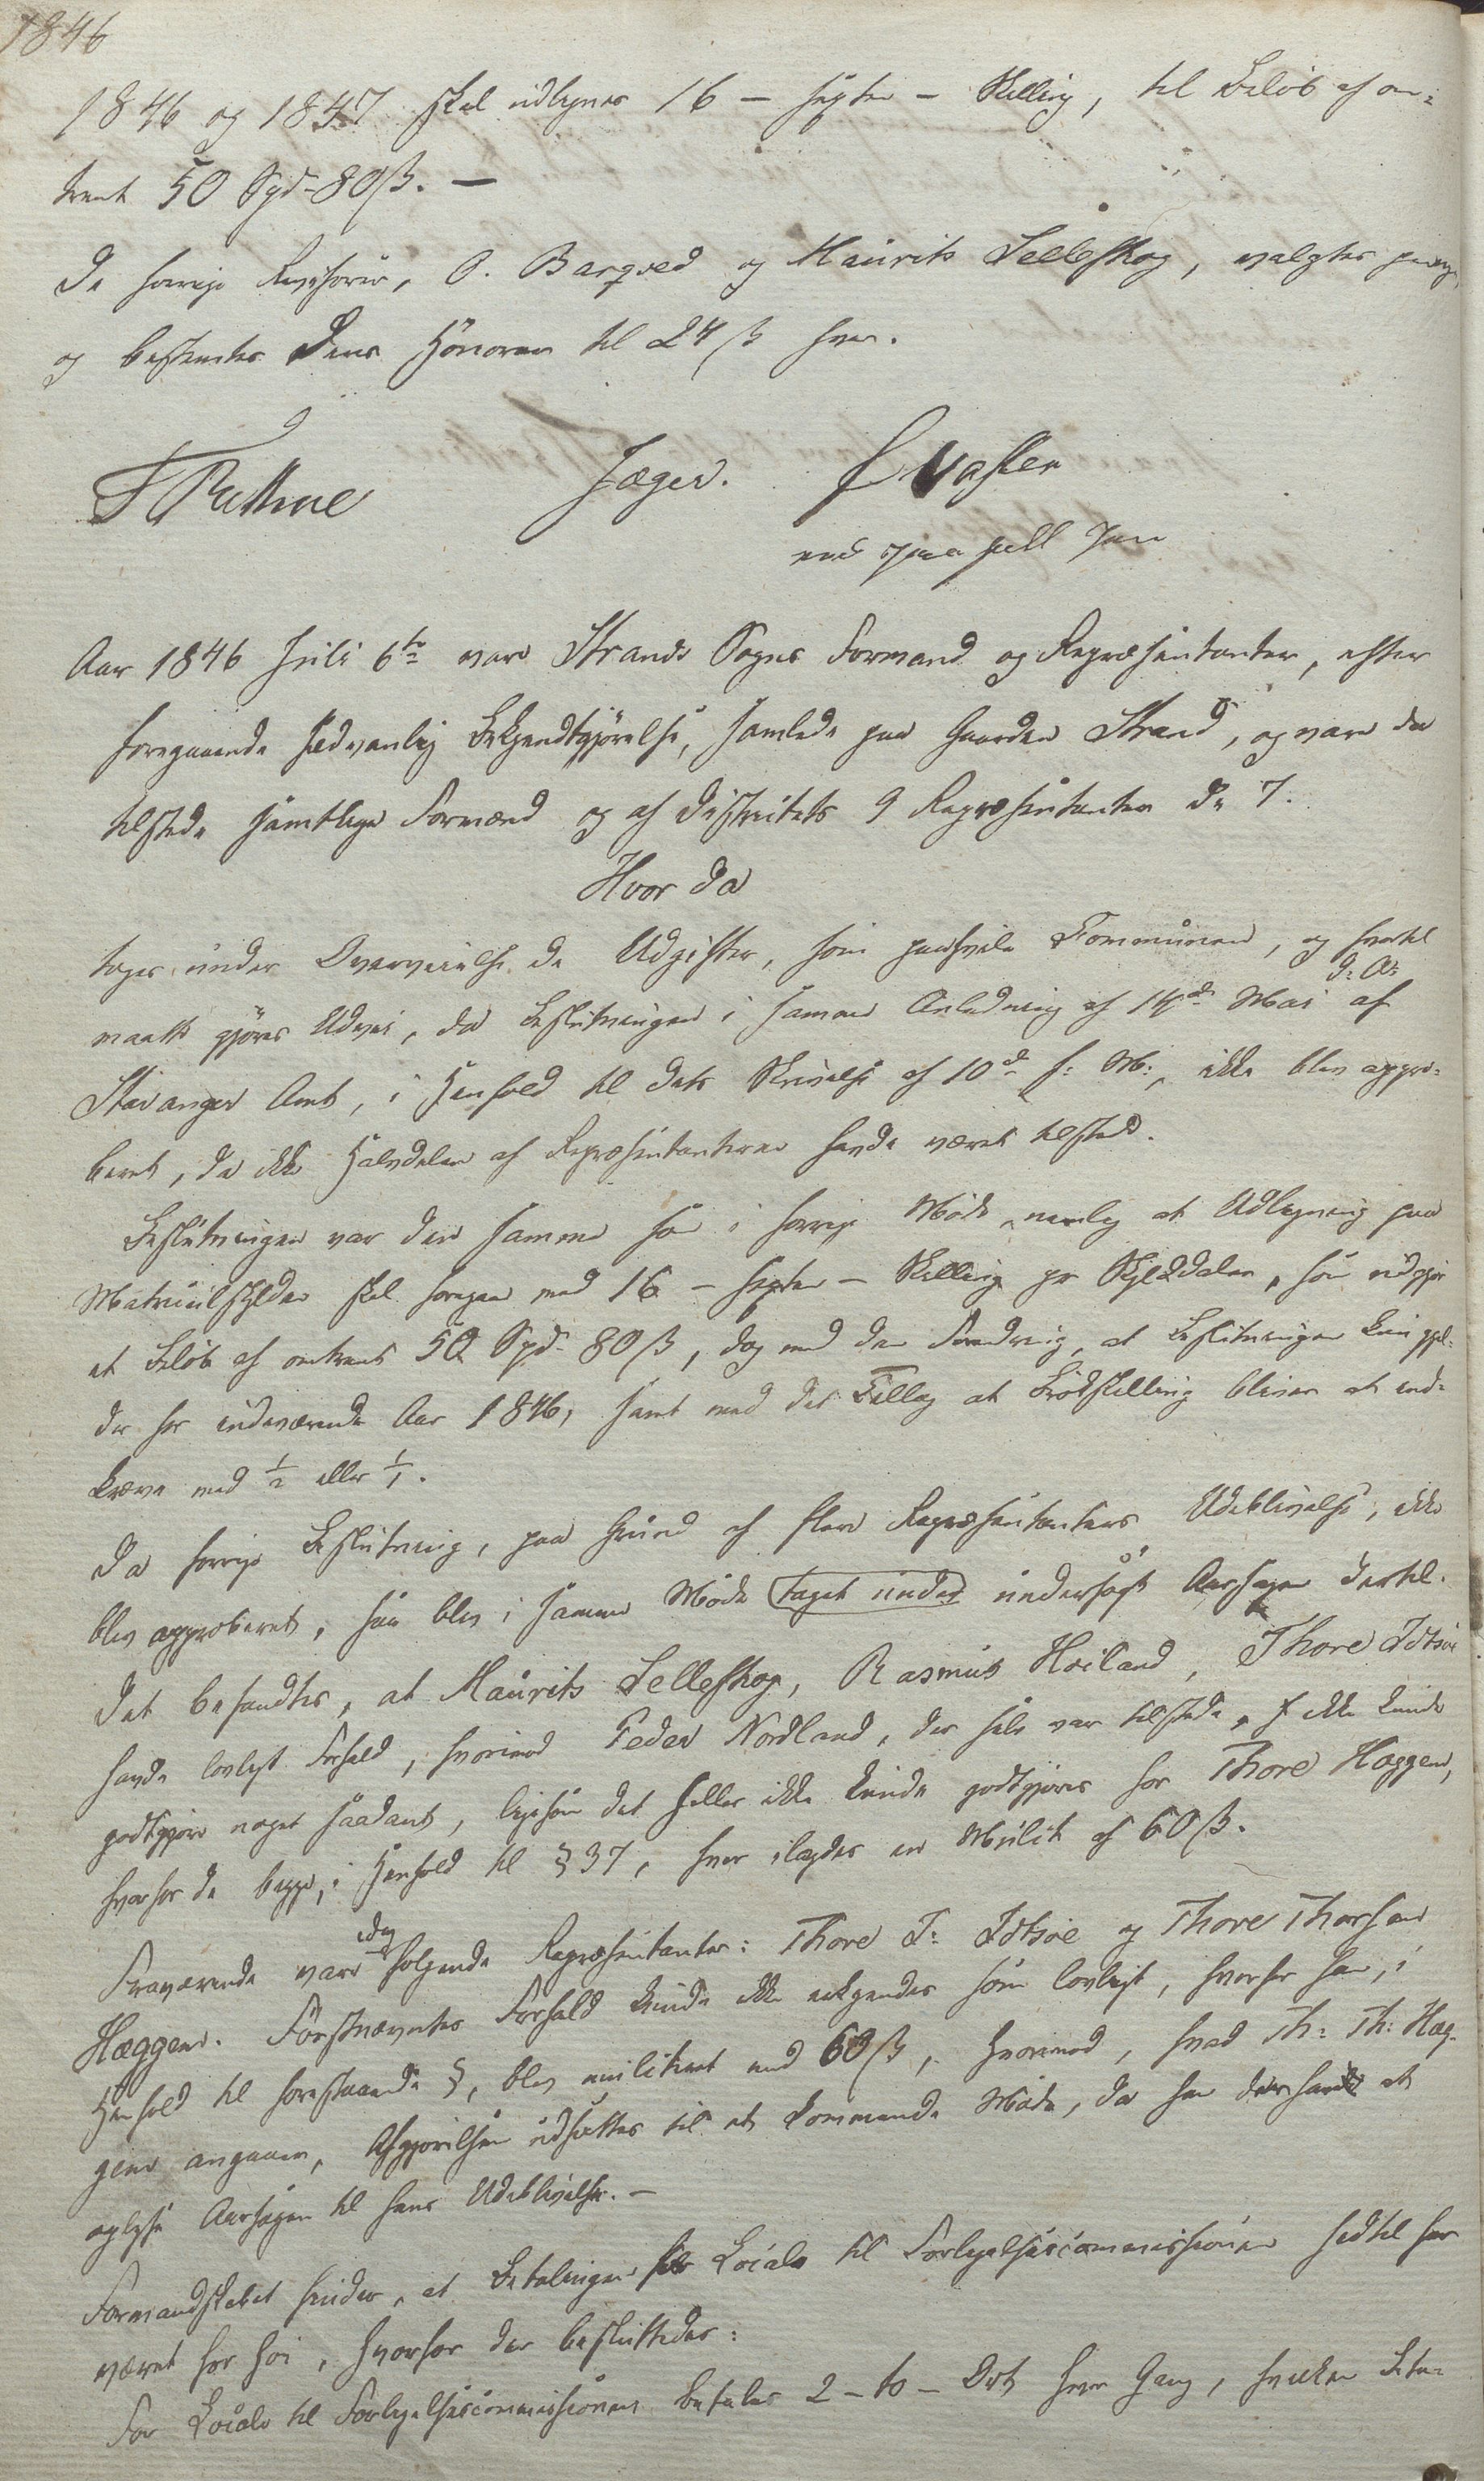 1846
1846 og 1847 skal udlignes 16 - sexten - Skilling, til Beløb af om-
trent 50 Spd-80ß. —
De forrige Revisorer, O. Barqved og Maurits Selleskog, valgtes paany,
og bestemtes deres Honorar til 24 ß hver.
Jæger.
Aar 1846 Juli 6te vare Strands Sogns Formænd og Repræsentanter, efter
foregaaende sædvanlig Bekjendtgjørelse, samlede paa Gaarden Strand, og vare da
tilstede samtlige Formænd og af Districtets 9 Repræsentanter de 7.
Hvor da
toges under Overveielse de Udgifter, som paahvile Kommunen, og hvortil
maatte gjøres Udvei, da Beslutningen i samme Anledning af 14de Mai d: A: af
Stavanger Amt, i Henhold til dets Skrivelse af 10de f: M:, ikke blev appro-
beret, da ikke Halvdelen af Repræsentanterne havde været tilstede.
Beslutningen var den samme som i forrige Møde, nemlig at Udligning paa
Matriculskylden skal foregaa med 16 - sexten - Skilling pr Skylddaler, som udgjør
et Beløb af omtrent 50 Spd- 80 ß, dog med den Forandring, at Beslutningen kun gjel-
der for indeværende Aar 1846, samt med det Tillæg at Brökskilling bliver at ind-
kræve med 1/2 eller 1/1.
Da forrige Beslutning, paa Grund af flere Repræsentanters Udeblivelse, ikke
blev approberet, saa blev i samme Møde taget under undersøgt Aarsagen dertil.
Det befandtes, at Maurits Selleskog, Rasmus Heiland, Thore Idtsøe
havde lovligt Forfald, hvorimod Peder Nordland, der selv var tilstede, ikke kunde
godtgjøre noget saadant, ligesom det heller ikke kunde godtgjøres for Thore Hæggen,
hvorfor de begge, i Henhold til § 37, hver ilagdes en Mulct af 60 ß.
Fraværende vare idag følgende Repræsentanter: Thore T: Idtsøe og Thore Thorsen
Hæggen. Førstnævntes Forfald kunde ikke erkjendes som lovligt, hvorfor han, i
Henhold til forestaaende §, blev mulcteret med 60 ß, hvorimod, hvad Th: Th: Hæg-
gen angaaer, Afgjørelsen udsættes til et kommende Møde, da han da har at
oplyse Aarsagen til hans Udeblivelse. —
Formandskabet finder, at Betalingen for Locale til Forligelsescommissionen hidtil har
været for høi, hvorfor der besluttedes:
For Locale til Forligelsescommissionen betales 2 - to - Ort hver Gang, hvilken Beta-